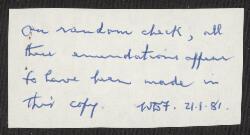 on random check, all
these emendations appear
to have been made in
this copy. WBF. 21.1.81.